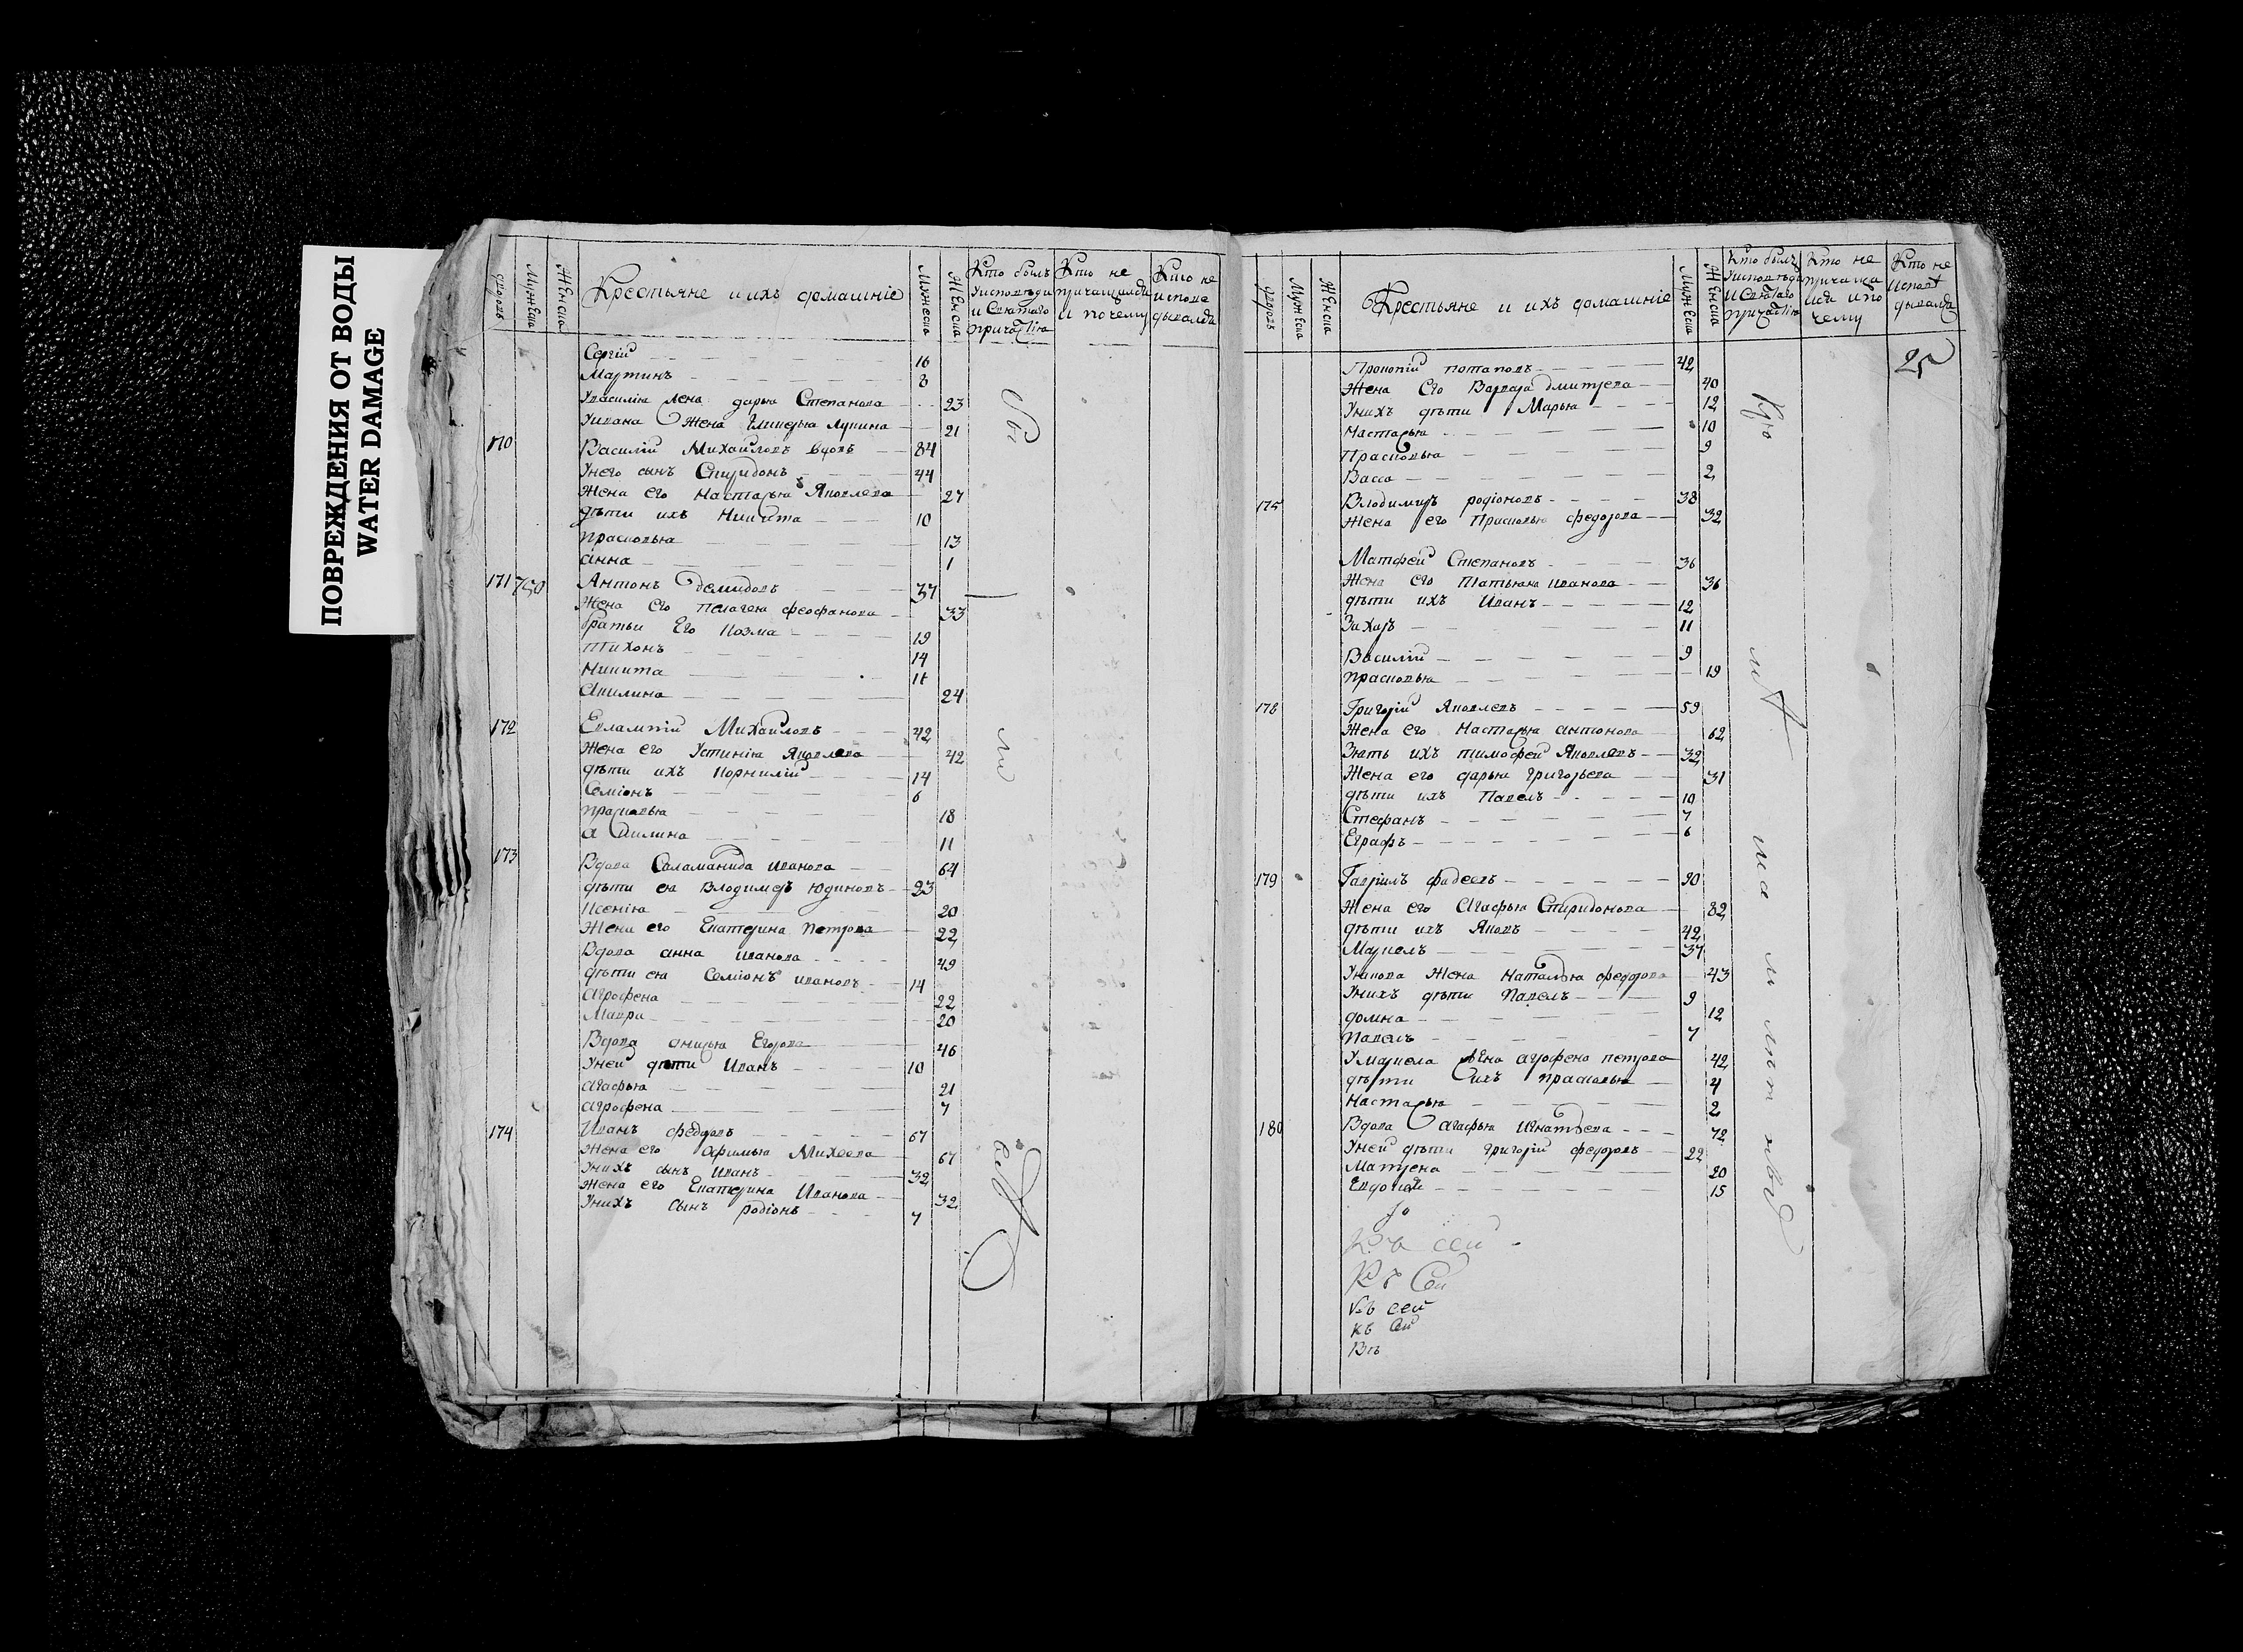 ПОВРЕЖДЕНИЯ ОТ ВОДЫ
WATER DAMAGE
дворовъ Мужеска Женска
Крестьяне и ихъ домашніе
Мужеска Женска
Кто былъ у исповѣди и святаго причастія
Кто не причащался и почему
Кто не исповедывался
Сергій 16
Мартинъ 8
У василія жена дарья Степанова 23
У ивана жена Гликерья Лупина 21
170 Василій Михайловъ вдовъ 84
У него сынъ Спиридонъ 44
Жена его Настасья Яковлева 27
дѣти ихъ Никита 10
прасковья 13
анна 1
171 750 Антонъ демидовъ 37
Жена Его пелагея феофанова 33
братьи Его Козма 19
Тихонъ 14
Никита 11
Акилина 24
172 Евлампій Михайловъ 42
Жена его Устинія Яковлева 42
дѣти ихъ Корнилій 14
Семіонъ 6
прасковья 18
акилина 11
173 Вдова Саламанида иванова 64
дѣти ея Владимеръ Юдиновъ 23
Ксенія 20
Жена его Екатерина Петрова 22
Вдова анна иванова 49
дѣти ея Семіонъ ивановъ 14
агрофена 22
Мавра 20
Вдова анисья Егорова 46
У ней дѣти Иванъ 10
агафья 21
агрофена 7
174 Иванъ федоровъ 67
Жена его Афимья Михеева 67
У нихъ сынъ иванъ 32
Жена его Екатерина Иванова 32
У нихъ сынъ родіонъ 7
дворовъ Мужеска Женска
Крестьяне и ихъ домашніе
Мужеска Женска
Кто былъ у исповѣди и святаго причастія
Кто не причащался и почему
Кто не исповедывался
25
Прокопій потаповъ 42
Жена Его Варвара дмитрева 40
У нихъ дѣти Марья 12
Настасья 10
Прасковья 9
Васса 2
175 Владимиръ родіоновъ 38
Жена его Прасковья федорова 32
Матфей Степановъ 36
Жена его Татьяна иванова 36
дѣти ихъ Иванъ 12
Захаръ 11
Василій 9
прасковья 19
178 Григорій Яковлевъ 59
Жена его Настасья антонова 62
Зять ихъ тимофей Яковлевъ 32
Жена его дарья григорьева 31
дѣти ихъ Павелъ 10
Стефанъ 7
Еграфъ 6
179 Гаврилъ фадеевъ 90
Жена его Агафья Спиридонова 82
дѣти ихъ Яковъ 42
Маркелъ 37
У якова Жена Наталья федорова 43
У нихъ дѣти Павелъ 9
домна 12
павелъ 7
У маркела жена агрофена петрова 42
дѣти ихъ прасковья 4
Настасья 2
180 Вдова Агафья Игнатьева 72
У ней дѣти григорій федоровъ 22
Матрена 20
15
Къ сей
Къ Сей
Къ сей
къ сей